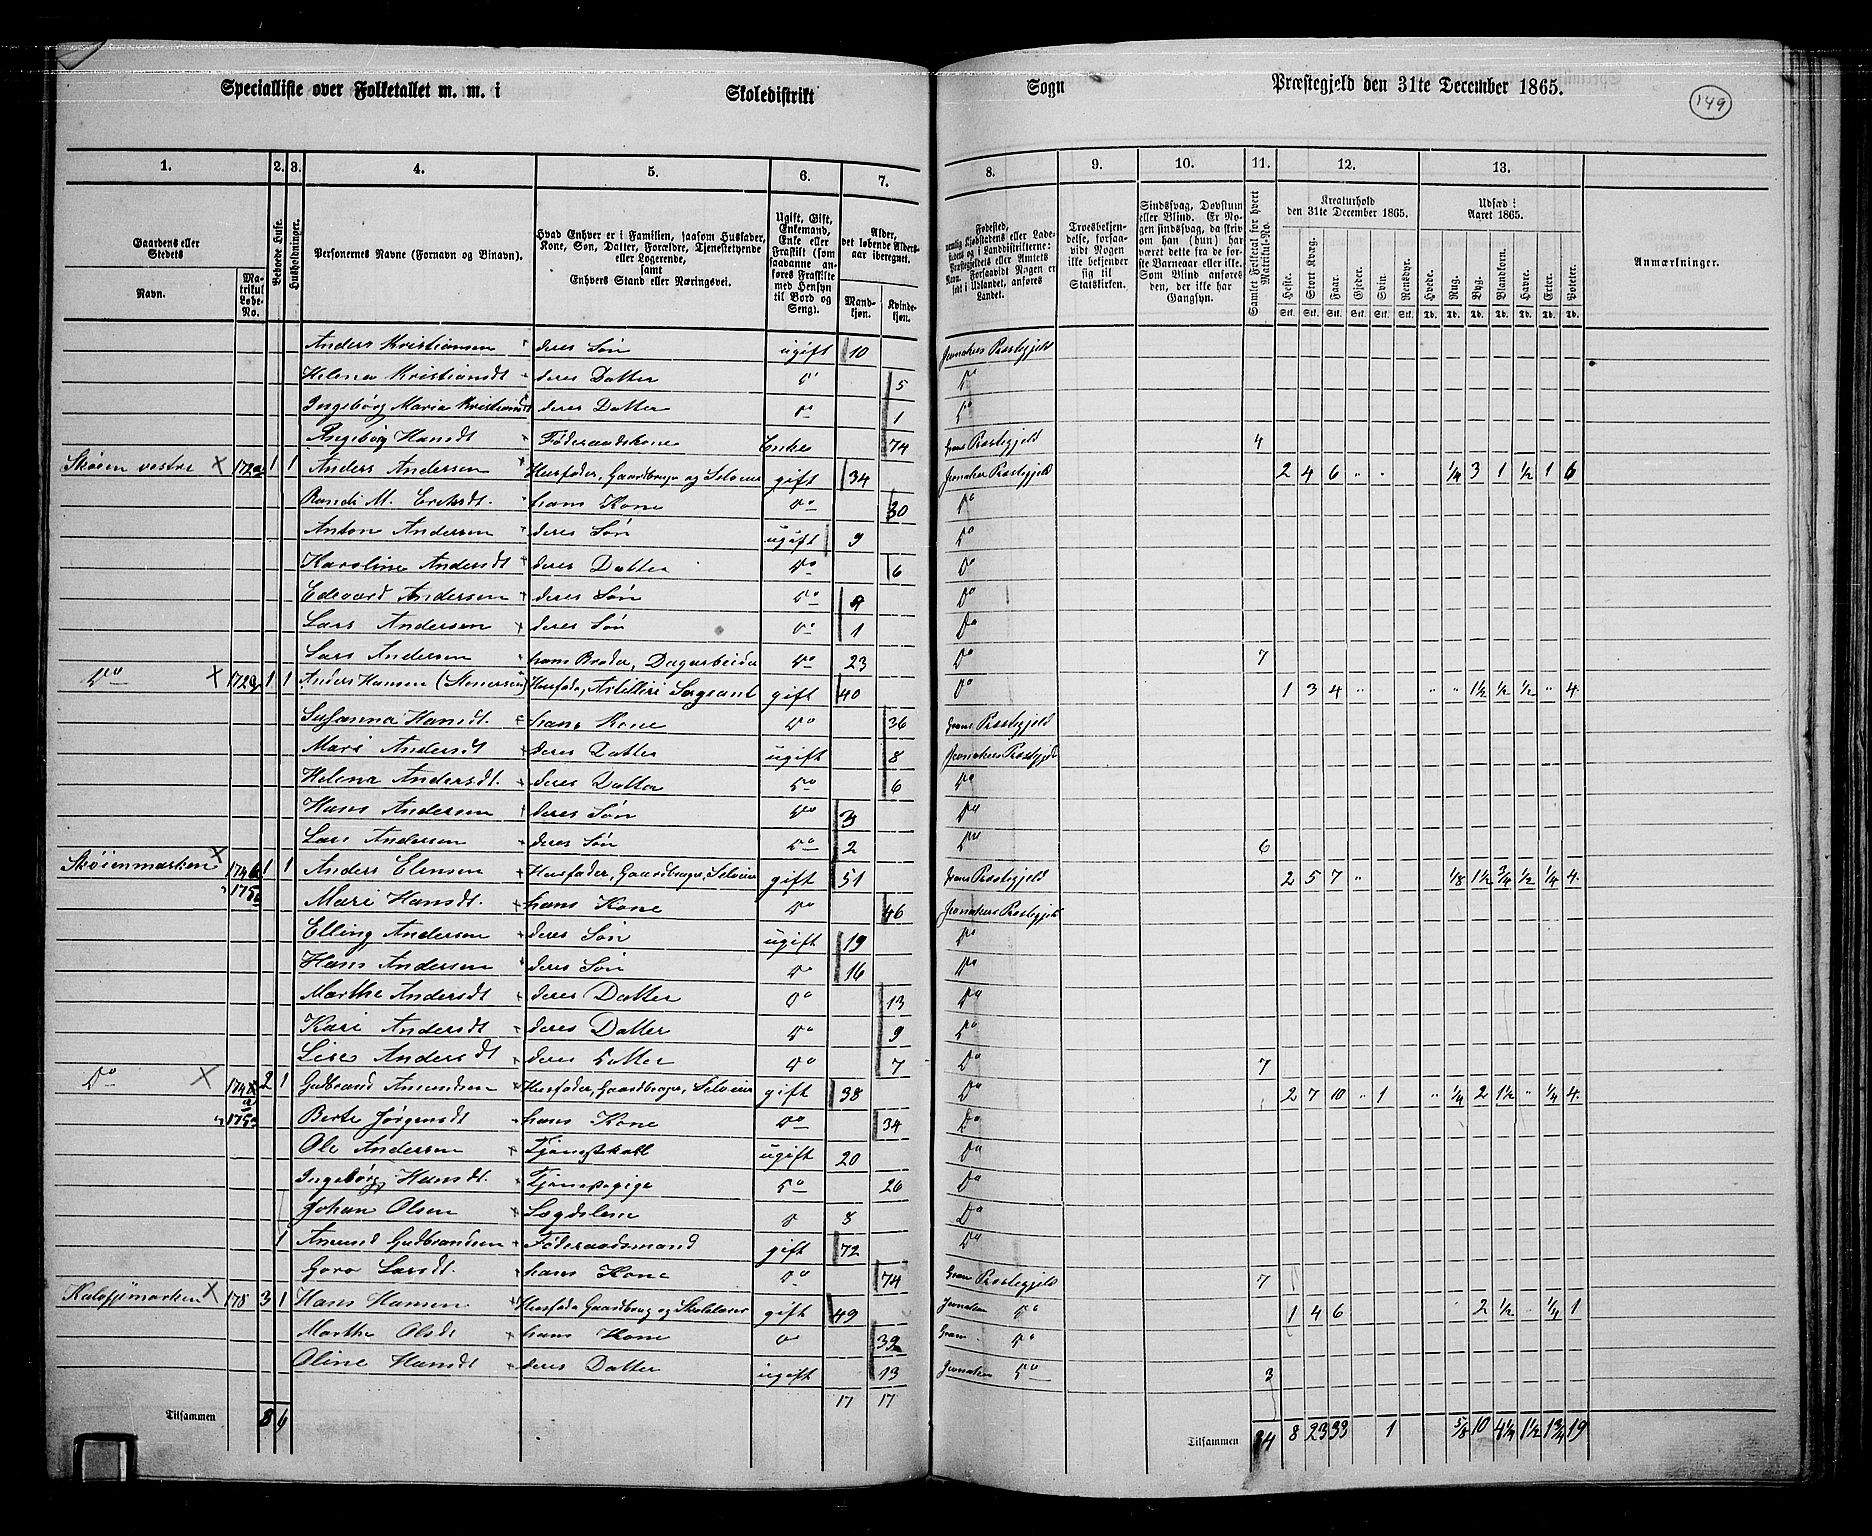 Specialliste over Folketallet m. m. i Skoledistrikt Sogn Præstegjeld den 31te December 1865.
149
1. 2. 3. 4. 5. 6. 7. 8. 9. 10. 11. 12. 13.
Gaardens eller Stedets
Navn.
Matrikul Løbe-No.
Beboede Huse.
Husholdninger.
Personernes Navne (Fornavn og Binavn).
Hvad Enhver er i Familien, saasom Husfader, Kone, Søn, Datter, Forældre, Tjenestetyende eller Logerende, samt Enhvers Stand eller Næringsvei.
Ugift, Gift, Enkemand, Enke eller Fraskilt (som saadanne anføres Fraskilte med Hensyn til Bord og Seng).
Alder, det løbende Aldersaar iberegnet.
Mandkjøn. Kvindekjøn.
Fødested,
Troesbekjendelse, forsaavidt Nogen ikke bekjender sig til Statskirken.
Sindssvag, Døvstum eller Blind. Er Nogen sindssvag, da skrives om han (hun) har været dette fra de første Barneaar eller ikke. Som Blind anføres den, der ikke har Gangsyn.
Samlet Folketal for hvert Matrikul-No.
Kreaturhold den 31te December 1865.
Heste. Stort Kvæg. Faar. Gjeder. Svin. Rensdyr.
Udsæd i Aaret 1865.
Hvede. Rug. Byg. Blandkorn. Havre. Erter. Poteter.
Anmærkninger.
Anders Kristiansen deres Søn ugift 10 Jevnakers Præstegjeld
Helena Kristiansdt deres Datter Do 5 Do
Ingebørg Maria Kristiansdt deres Datter Do 1 Do
Ingebørg Hansdt Føderaadskone Enke 74 Grans Præstegjeld 4
Skøien vestre 172a 1 1 Anders Andersen Husfader, Gaardbruger og Selveier gift 34 Jevnaker Præstegjeld 2 4 6 " " 1/4 3 1 1/2 1 6
Randi M. Eriksdt. hans Kone Do 30 Do
Anton Andersen deres Søn ugift 9 Do
Karoline Andersdt deres Datter Do 6 Do
Edevard Andersen deres Søn Do 4 Do
Lars Andersen deres Søn Do 1 Do
Lars Andersen hans Broder, Dagarbeider Do 23 Do 7
Do 172 1 1 Anders Hansen Husfader, Artilleri Sergeant gift 40 Do 1 3 4 " " " 1 1/2 1/2 1/2 " 4
Susanna Hansdt. hans Kone Do 36 Grans Præstegjeld
Mari Andersdt deres Datter ugift 8 Jevnakers Præstegjeld
Helena Andersdt. deres Datter Do 6 Do
Hans Andersen deres Søn Do 3 Do
Lars Andersen deres Søn Do 2 Do 6
Skøienmarken 174b 1 1 Anders Elensen Husfader, Gaardbruger, Selveier gift 51 Grans Præstegjeld 2 5 7 " 1/8 1 1/2 3/4 1/2 1/4 4
" 175 Mari Hansdt. hans Kone Do 46 Jevnakers Præstegjeld
Elling Andersen deres Søn ugift 19 Do
Hans Andersen deres Søn Do 16 Do
Marthe Andersdt deres Datter Do 13 Do
Kari Andersdt deres Datter Do 9 Do
Lise Andersdt deres Datter Do 7 Do 7
Do 174 a 2 1 Gudbrand Amundsen Husfader, Gaardbruger, Selveier gift 38 Do 2 7 10 " 1 " 1/4 2 1 1/2 " 1/4 4
" 175a Berte Jørgensdt hans Kone Do 34 Do
Ole Andersen Tjenestkall ugift 20 Do
Ingebørg Hansdt. Tjenestepige Do 26 Do
Johan Olsen Lægdslem Do 8 Do
1 Amund Gudbrandsen Føderaadsmand gift 72 Do
Goro Larsdt. hans Kone Do 74 Gran Præstegjeld 7
178 3 1 Hans Hansen Husfader Gaardbrug og Skolelærer gift 49 Jevnaker Do 1 4 6 " 2 1/2 " 1/4 1
Marthe Olsdt hans Kone Do 39 Gran Do
Oline Hansdt deres Datter ugift 13 Jevnaker Do 3
17 17
Tilsammen 8 6 Tilsammen 34 8 23 33 1 5/8 10 4 1/4 1 1/2 1 3/4 19